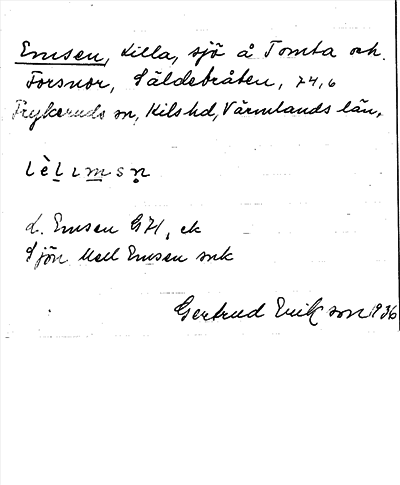 Emsen, Lilla, sjö å Tomta och
Forsnor, Säldebråten, 74,6
Frykeruds sn, Kils hd, Värmlands län.
L. Emsen GK, ek
Sjön Lill Emsen snk
Gertrud Eriksson 1936